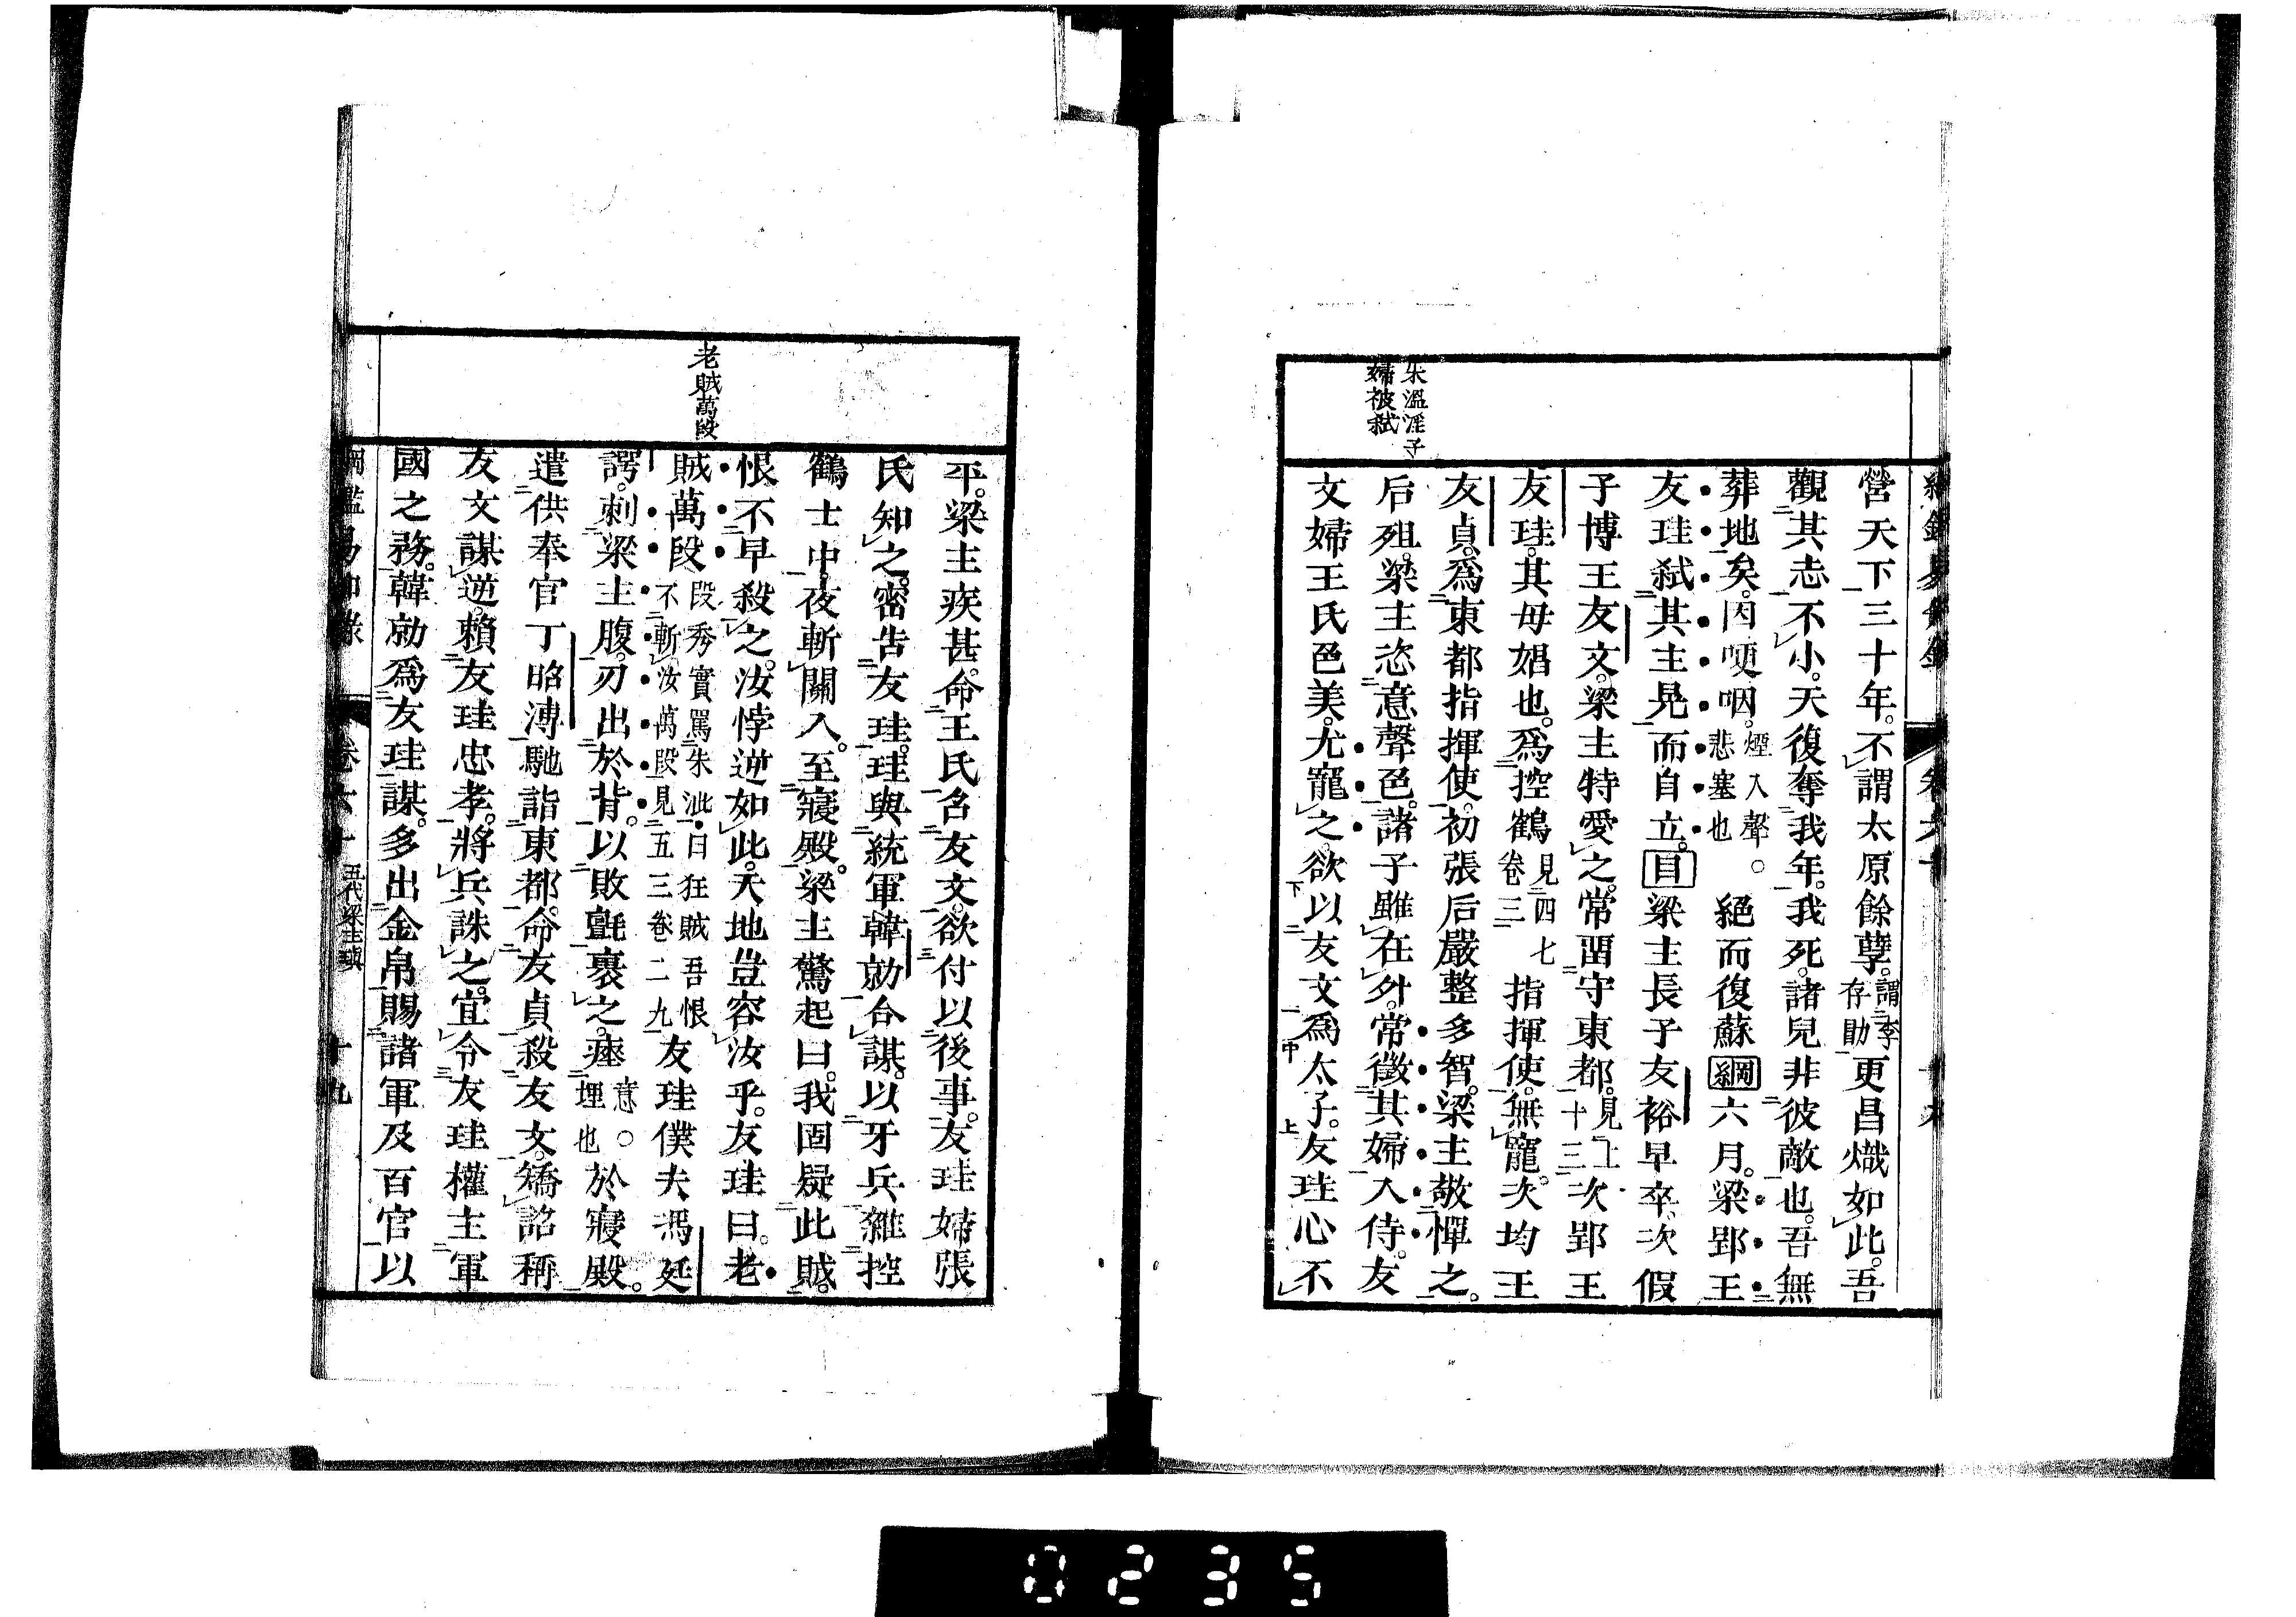 朱溫淫子
婦被弑
營天下三十年。不謂太原餘孽。謂李存勖更昌熾如此。吾
觀其志不小。天復奪我年。我死。諸兒非彼敵也。吾無
葬地矣。因哽咽。煙入聲。○悲塞也絕而復蘇綱六月。梁郢王
友珪弑其主晃而自立。目梁主長子友裕早卒。次假
子博王友文。梁主特愛之。常留守東都。見上十三次郢王
友珪。其母娼也。爲控鶴見四七卷三指揮使。無寵。次均王
友貞。爲東都指揮使。初張后嚴整多智。梁主敬憚之。
后殂。梁主恣意聲色。諸子雖在外。常徵其婦入侍。友
文婦王氏色美。尤寵之。欲以友文爲太子。友珪心不
老賊萬段
平。梁主疾甚。命王氏召友文。欲付以後事。友珪婦張
氏知之。密告友珪。珪與統軍韓勍合謀。以牙兵雜控
鶴士中。夜斬關入。至寢殿。梁主驚起曰。我固疑此賊。
恨不早殺之。汝悖逆如此。天地豈容汝乎。友珪曰。老
賊萬段段秀實罵朱泚曰狂賊吾恨不斬汝萬段見五三卷二九友珪僕夫馮廷
諤。刺梁主腹。刃出於背。以敗氈裹之。瘞意○埋也於寢殿。
遣供奉官丁昭溥馳詣東都。命友貞殺友文。矯詔稱
友文謀逆。賴友珪忠孝。將兵誅之。宜令友珪權主軍
國之務。韓勍爲友珪謀。多出金帛賜諸軍及百官以
綱鑑易知錄 卷六十 五代梁主瑱 十九
0235